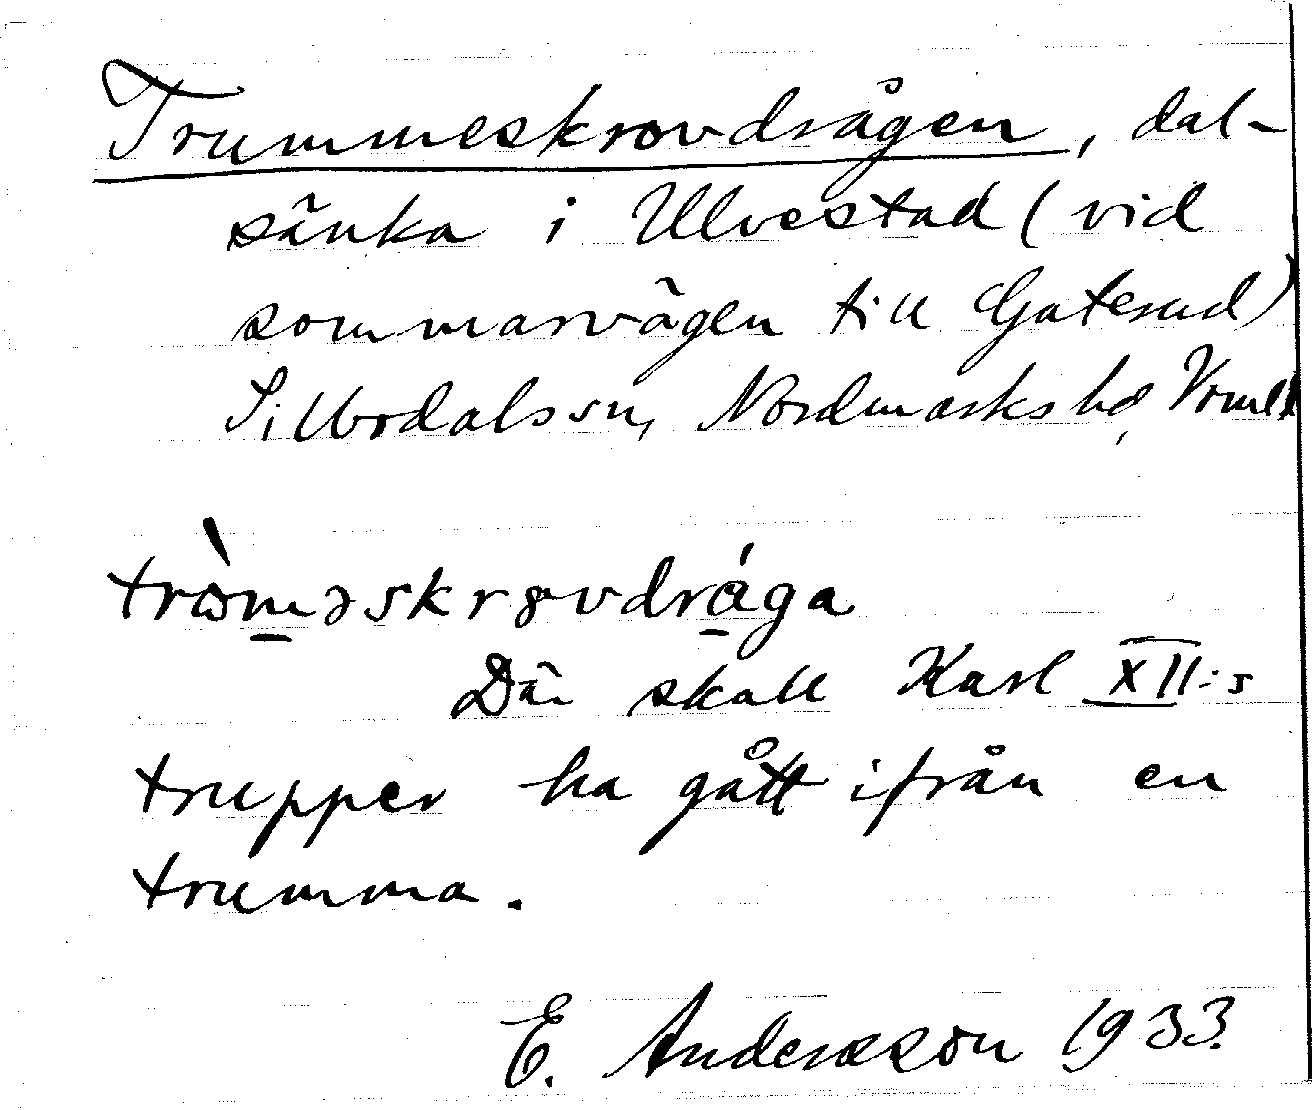 Trummeskrovdrågen, dal-
sänka i Ulvestad (vid
sommarvägen till Gaterud)
Silbodals sn, Nordmarks hd, Vrml
tròməskrovdrága
Där skall Karl XII:s
trupper ha gått ifrån en
trumma.
E. Andersson 1933.